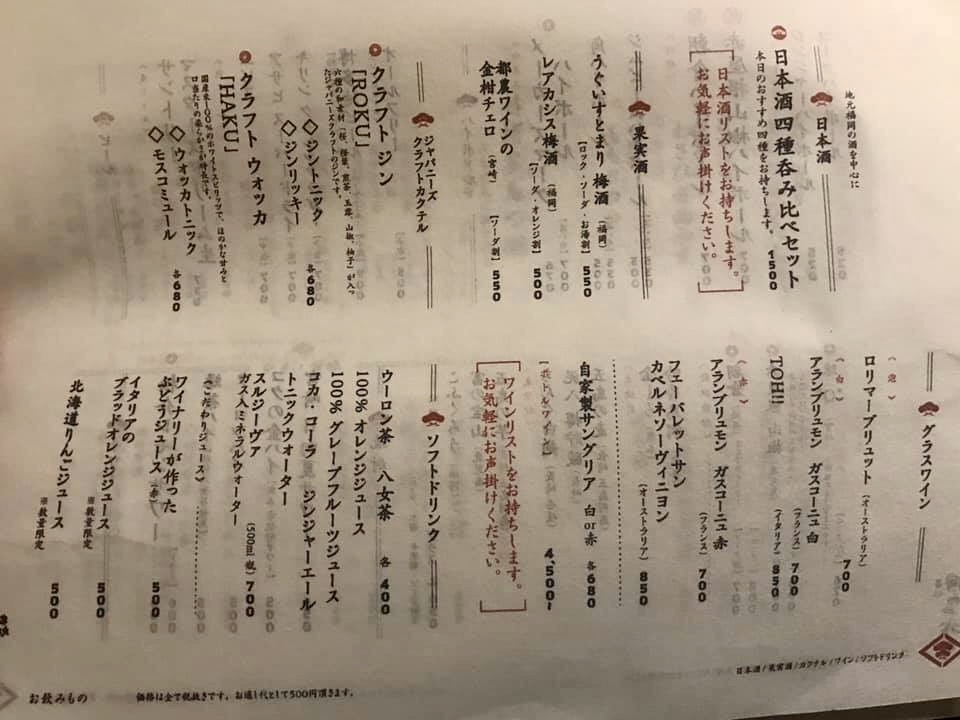 日本酒
地元福岡の酒を中心に
日本酒四種呑み比べセット
本日のおすすめ四種をお持ちします。 1500
日本酒リストをお持ちします。
お気軽にお声掛けください。
果実酒
うぐいすとまり梅酒(福岡)
【ロック・ソーダ・お湯割】550
レアカシス梅酒(福岡)
【ソーダ・オレンジ割】500
都農ワインの
金柑チェロ(宮崎)【ソーダ割】550
ジャパニーズ
クラフトカクテル
クラフト ジン
「ROKU」
六種の和素材(桜、桜葉、煎茶、玉露、山椒、柚子)が入っ
たジャパニーズクラフトのジンです。
◇ジントニック
◇ジンリッキー 各680
クラフト ウォッカ
「HAKU」
国産米100%のホワイトスピリッツで、ほのかな甘みと
口当たりの柔らかさが特長です。
◇ウォッカトニック
◇モスコミュール 各680
グラスワイン
《泡》
ロリマーブリュット(オーストラリア) 700
《白》
アランブリュモン ガスコーニュ 白
(フランス) 700
TOH!!
(イタリア) 850
《赤》
アランブリュモン ガスコーニュ 赤
(フランス) 700
フェーバレットサン
カベルネソーヴィニヨン
(オーストラリア) 850
自家製サングリア 白or赤 各680
【ボトルワイン】 4,500~
ワインリストをお持ちします。
お気軽にお声掛けください。
ソフトドリンク
ウーロン茶 八女茶 各400
100% オレンジジュース
100% グレープフルーツジュース
コカ・コーラ ジンジャーエール
トニックウォーター
スルジーヴァ
ガス入ミネラルウォーター (500ml 瓶) 700
《こだわりジュース》
ワイナリーが作った
ぶどうジュース(赤) 500
イタリアの
ブラッドオレンジジュース
※数量限定 500
北海道りんごジュース
※数量限定 500
日本酒/果実酒/カクテル/ワイン/ソフトドリンク
お飲みもの
価格は全て税抜きです。お通し代として500円頂きます。